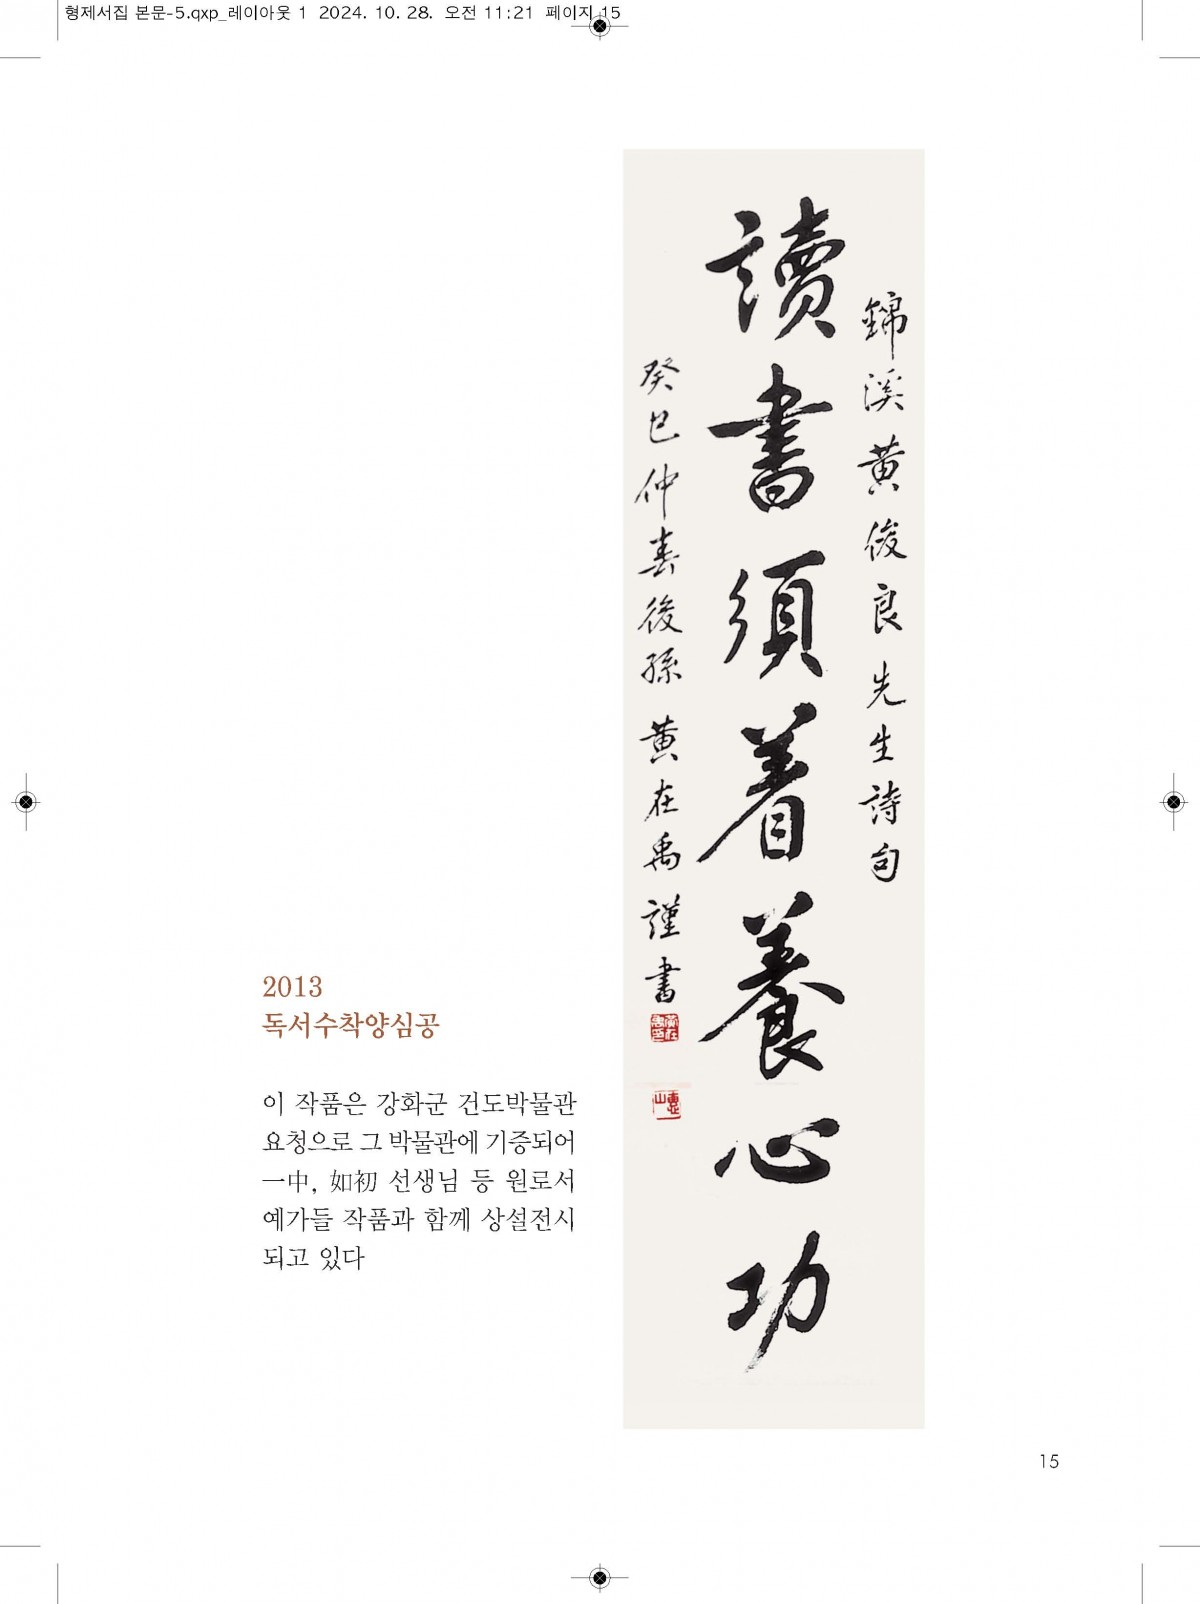 형제서집 본문-5.qxp_레이아웃 1 2024. 10. 28. 오전 11:21 페이지 15
錦溪黃俊良先生詩句
讀書須着養心功
癸巳仲春後孫 黃在禹 謹書
2013
독서수착양심공
이 작품은 강화군 건도박물관
요청으로 그 박물관에 기증되어
一中, 如初 선생님 등 원로서
예가들 작품과 함께 상설전시
되고 있다
15